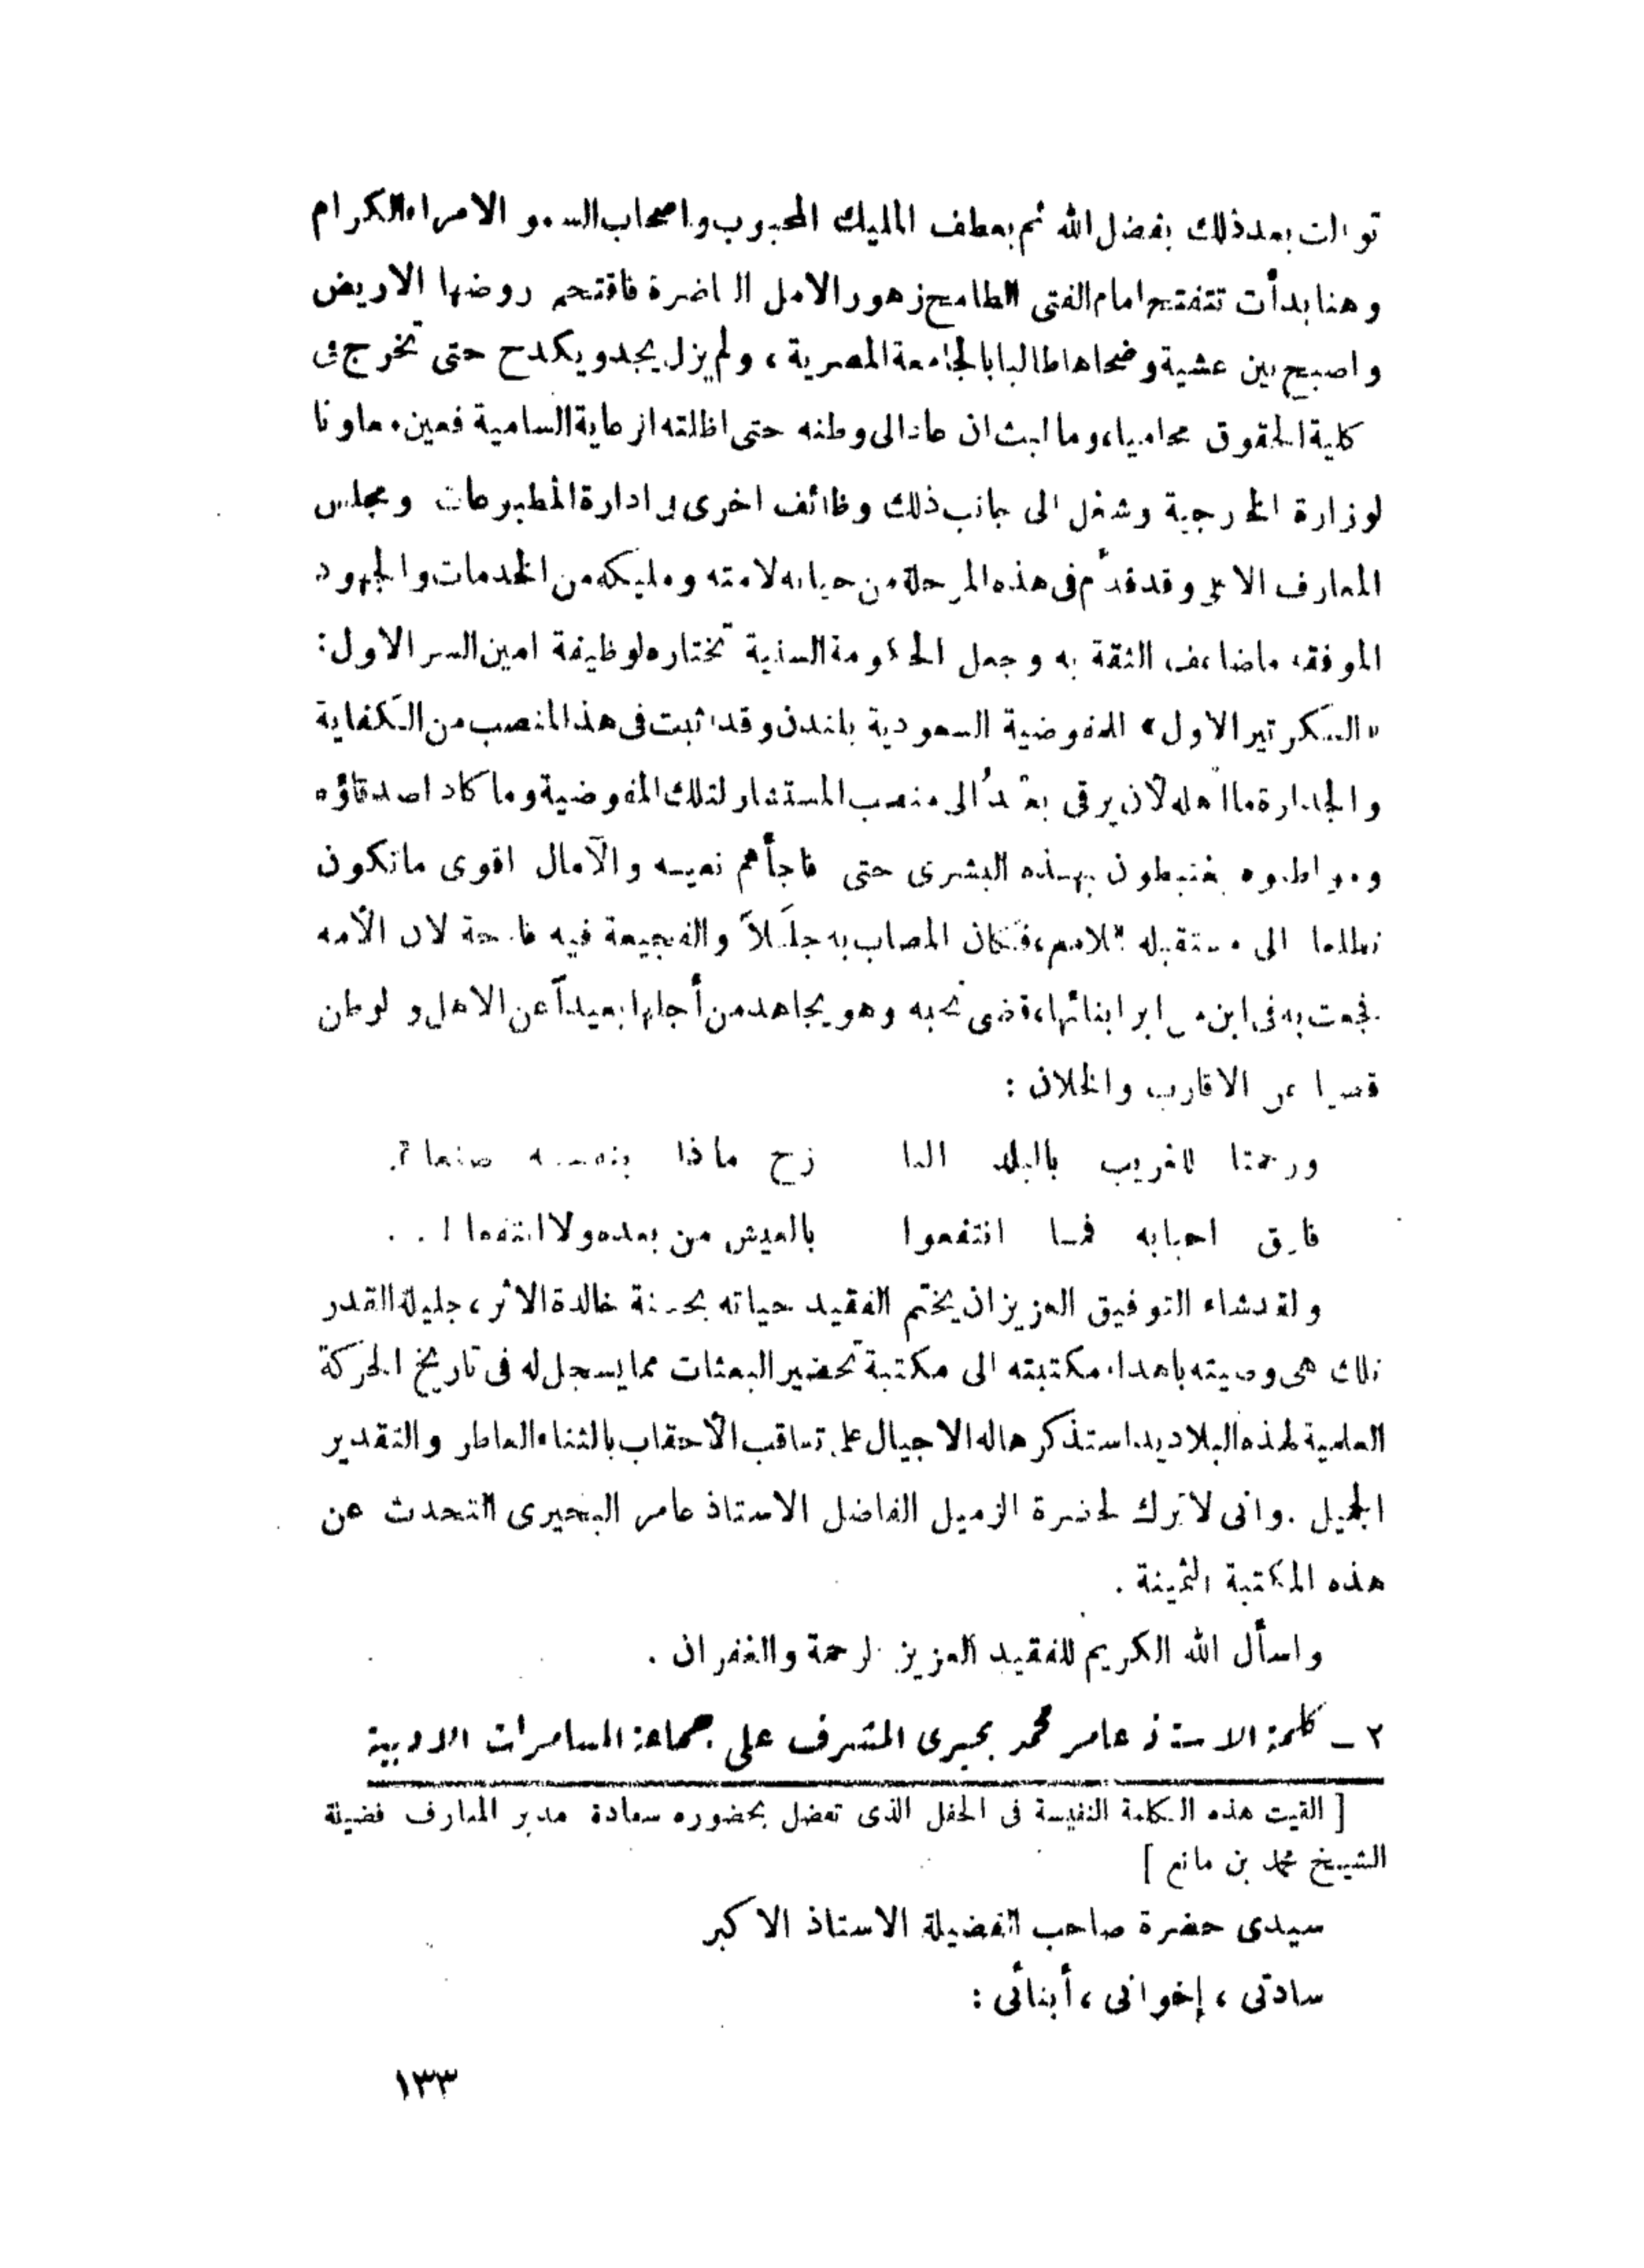 توالت بعد ذلك بفضل الله ثم بعطف المليك المحبوب واصحاب السمو الامراء الكرام
وهنا بدأت تتفتح امام الفتى الطامح زهور الامل الناضرة فاقتحم روضها الاريض
واصبح بين عشية وضحاها طالبا بالجامعة المصرية ، ولم يزل يجد ويكدح حتى تخرج فى
كلية الحقوق محاميا، وما لبث ان عاد الى وطنه حتى اظلته الرعاية السامية فعين معاونا
لوزارة الخارجية وشغل الى جانب ذلك وظائف اخرى فى ادارة المطبوعات ومجلس
المعارف الاعلى وقد قدم فى هذه المرحلة من حياته لامته ومليكه من الخدمات والجهود
الموفقة ماضاعف الثقة به وجعل الحكومة السنية تختاره لوظيفة امين السر الاول :
«السكرتير الاول» للمفوضية السعودية بلندن وقد اثبت فى هذا المنصب من الكفاية
والجدارة ما اهله لأن يرقى بعدُ الى منصب المستشار لتلك المفوضية وما كاد اصدقاؤه
ومواطنوه يغتبطون بهذه البشرى حتى فاجأهم نعيه والآمال اقوى ماتكون
تطلعا الى مستقبله اللامع، فكان المصاب به جللاً والفجيعة فيه فادحة لان الأمه
فجعت به فى ابن من ابر ابنائها، قضى نحبه وهو يجاهد من أجلها بعيداً عن الاهل والوطن
قصيا عن الاقارب والخلان :
ورحمتا للغريب بالبلد النا زح ماذا بنفسه صنعا ؟
فارق احبابه فما انتفعوا بالعيش من بعده ولا انتفعا ! . .
ولقد شاء التوفيق العزيز ان يختم الفقيد حياته بحسنة خالدة الاثر ، جليلة القدر
تلك هى وصيته باهداء مكتبته الى مكتبة تحضير البعثات مما يسجل له فى تاريخ الحركة
العلمية لهذه البلاد يدا ستذكرها له الاجيال على تعاقب الأحقاب بالثناء العاطر والتقدير
الجميل . وانى لاترك لحضرة الزميل الفاضل الاستاذ عامر البحيرى التحدث عن
هذه المكتبة الثمينة .
واسأل الله الكريم للفقيد العزيز الرحمة والغفران .
٢ ـ كلمة الاستاذ عامر محمد بحيرى المشرف على جماعة المسامرات الادبية
[ القيت هذه الكلمة النفيسة فى الحفل الذى تفضل بحضوره سعادة مدير المعارف فضيلة
الشيخ محمد بن مانع ]
سيدى حضرة صاحب الفضيلة الاستاذ الاكبر
سادتى ، إخوانى ، أبنائى :
١٣٣